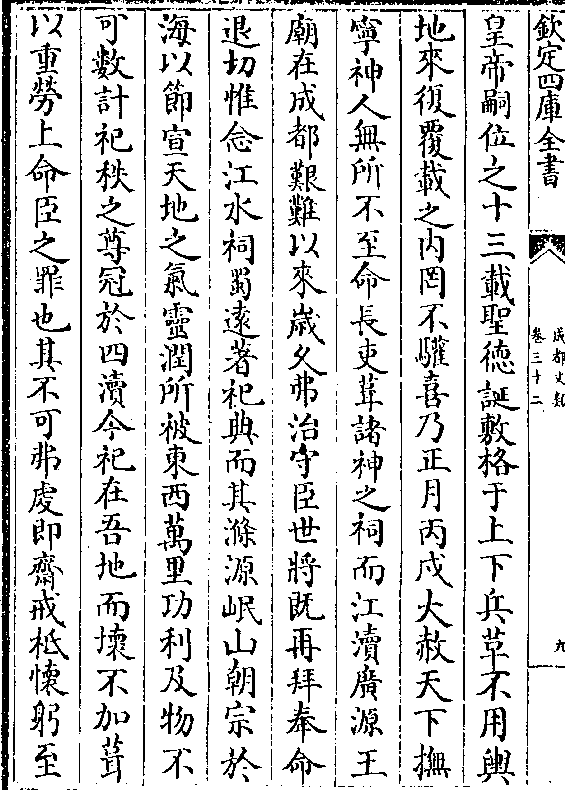 欽定四庫全書
成都文類
卷三十二
九
皇帝嗣位之十三載聖德誕敷格于上下兵革不用輿
地來復覆載之内罔不驩喜乃正月丙戌大赦天下撫
寧神人無所不至命長吏葺諸神之祠而江瀆廣源王
廟在成都艱難以來嵗久弗治守臣世將既再拜奉命
退切惟念江水祠蜀逺著祀典而其滌源岷山朝宗於
海以節宣天地之氣靈潤所被東西萬里功利及物不
可數計祀秩之尊冠於四瀆今祀在吾地而壊不加葺
以重勞上命臣之罪也其不可弗䖍即齋戒秪懐躬至